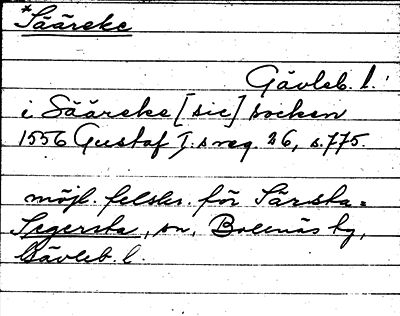 *Sääreke
Gävleb. l.
i Sääreke [sic] socken
1556 Gustaf I.s reg. 26, s. 775.
möjl. felskr. för Särska =
Segersta, sn, Bollnäs kg,
Gävleb. l.